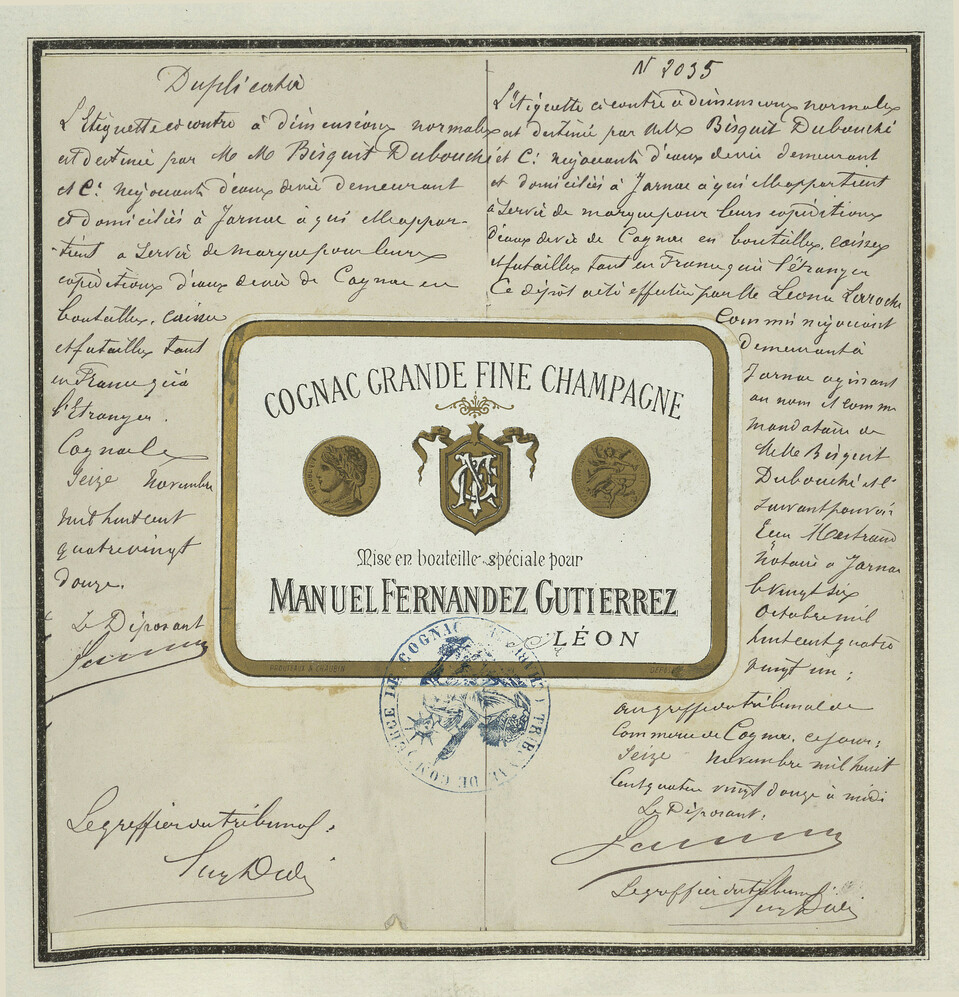 Duplicata
L'Etiquette ci contre à dimensions normales
est destinée par M M Bisquit Dubouché
et Cie négociants d'eaux de vie demeurant
et domiciliés à Jarnac à qui elle appar-
-tient a servir de marque pour leurs
expéditions d'eaux de vie de Cognac en
bouteilles, caisses
et futailles tant
en France qu'à
l'Etranger.
Cognac le
Seize Novembre
mil huit cent
quatre vingt
douze.
Le Déposant
Le greffier du tribunal.
N 2035
L'étiquette ci contre à dimensions normales
est destinée par MM Bisquit Dubouché
et Cie négociants d'eaux de vie demeurant
et domiciliés à Jarnac à qui elle appartient
à servir de marque pour leurs expéditions
d'eaux de vie de Cognac en bouteilles, caisses
et futailles tant en France qu'à l'étranger
Ce dépôt a été effectué par Mr Leona Laroche
Commis négociant
demeurant à
Jarnac agissant
au nom et comme
mandataire de
MM Bisquit
Dubouché et Cie
suivant pouvoir
notaire à Jarnac
le vingt six
Octobre mil
huit cent quatre
vingt un;
au greffe du tribunal de
Commerce de Cognac, ce jour;
Seize Novembre mil huit
Cent quatre vingt douze à midi
Le Déposant.
Le greffier du tribunal.
COGNAC GRANDE FINE CHAMPAGNE
Mise en bouteille spéciale pour
MANUEL FERNANDEZ GUTIERREZ
LÉON
TRIBUNAL DE COMMERCE DE COGNAC